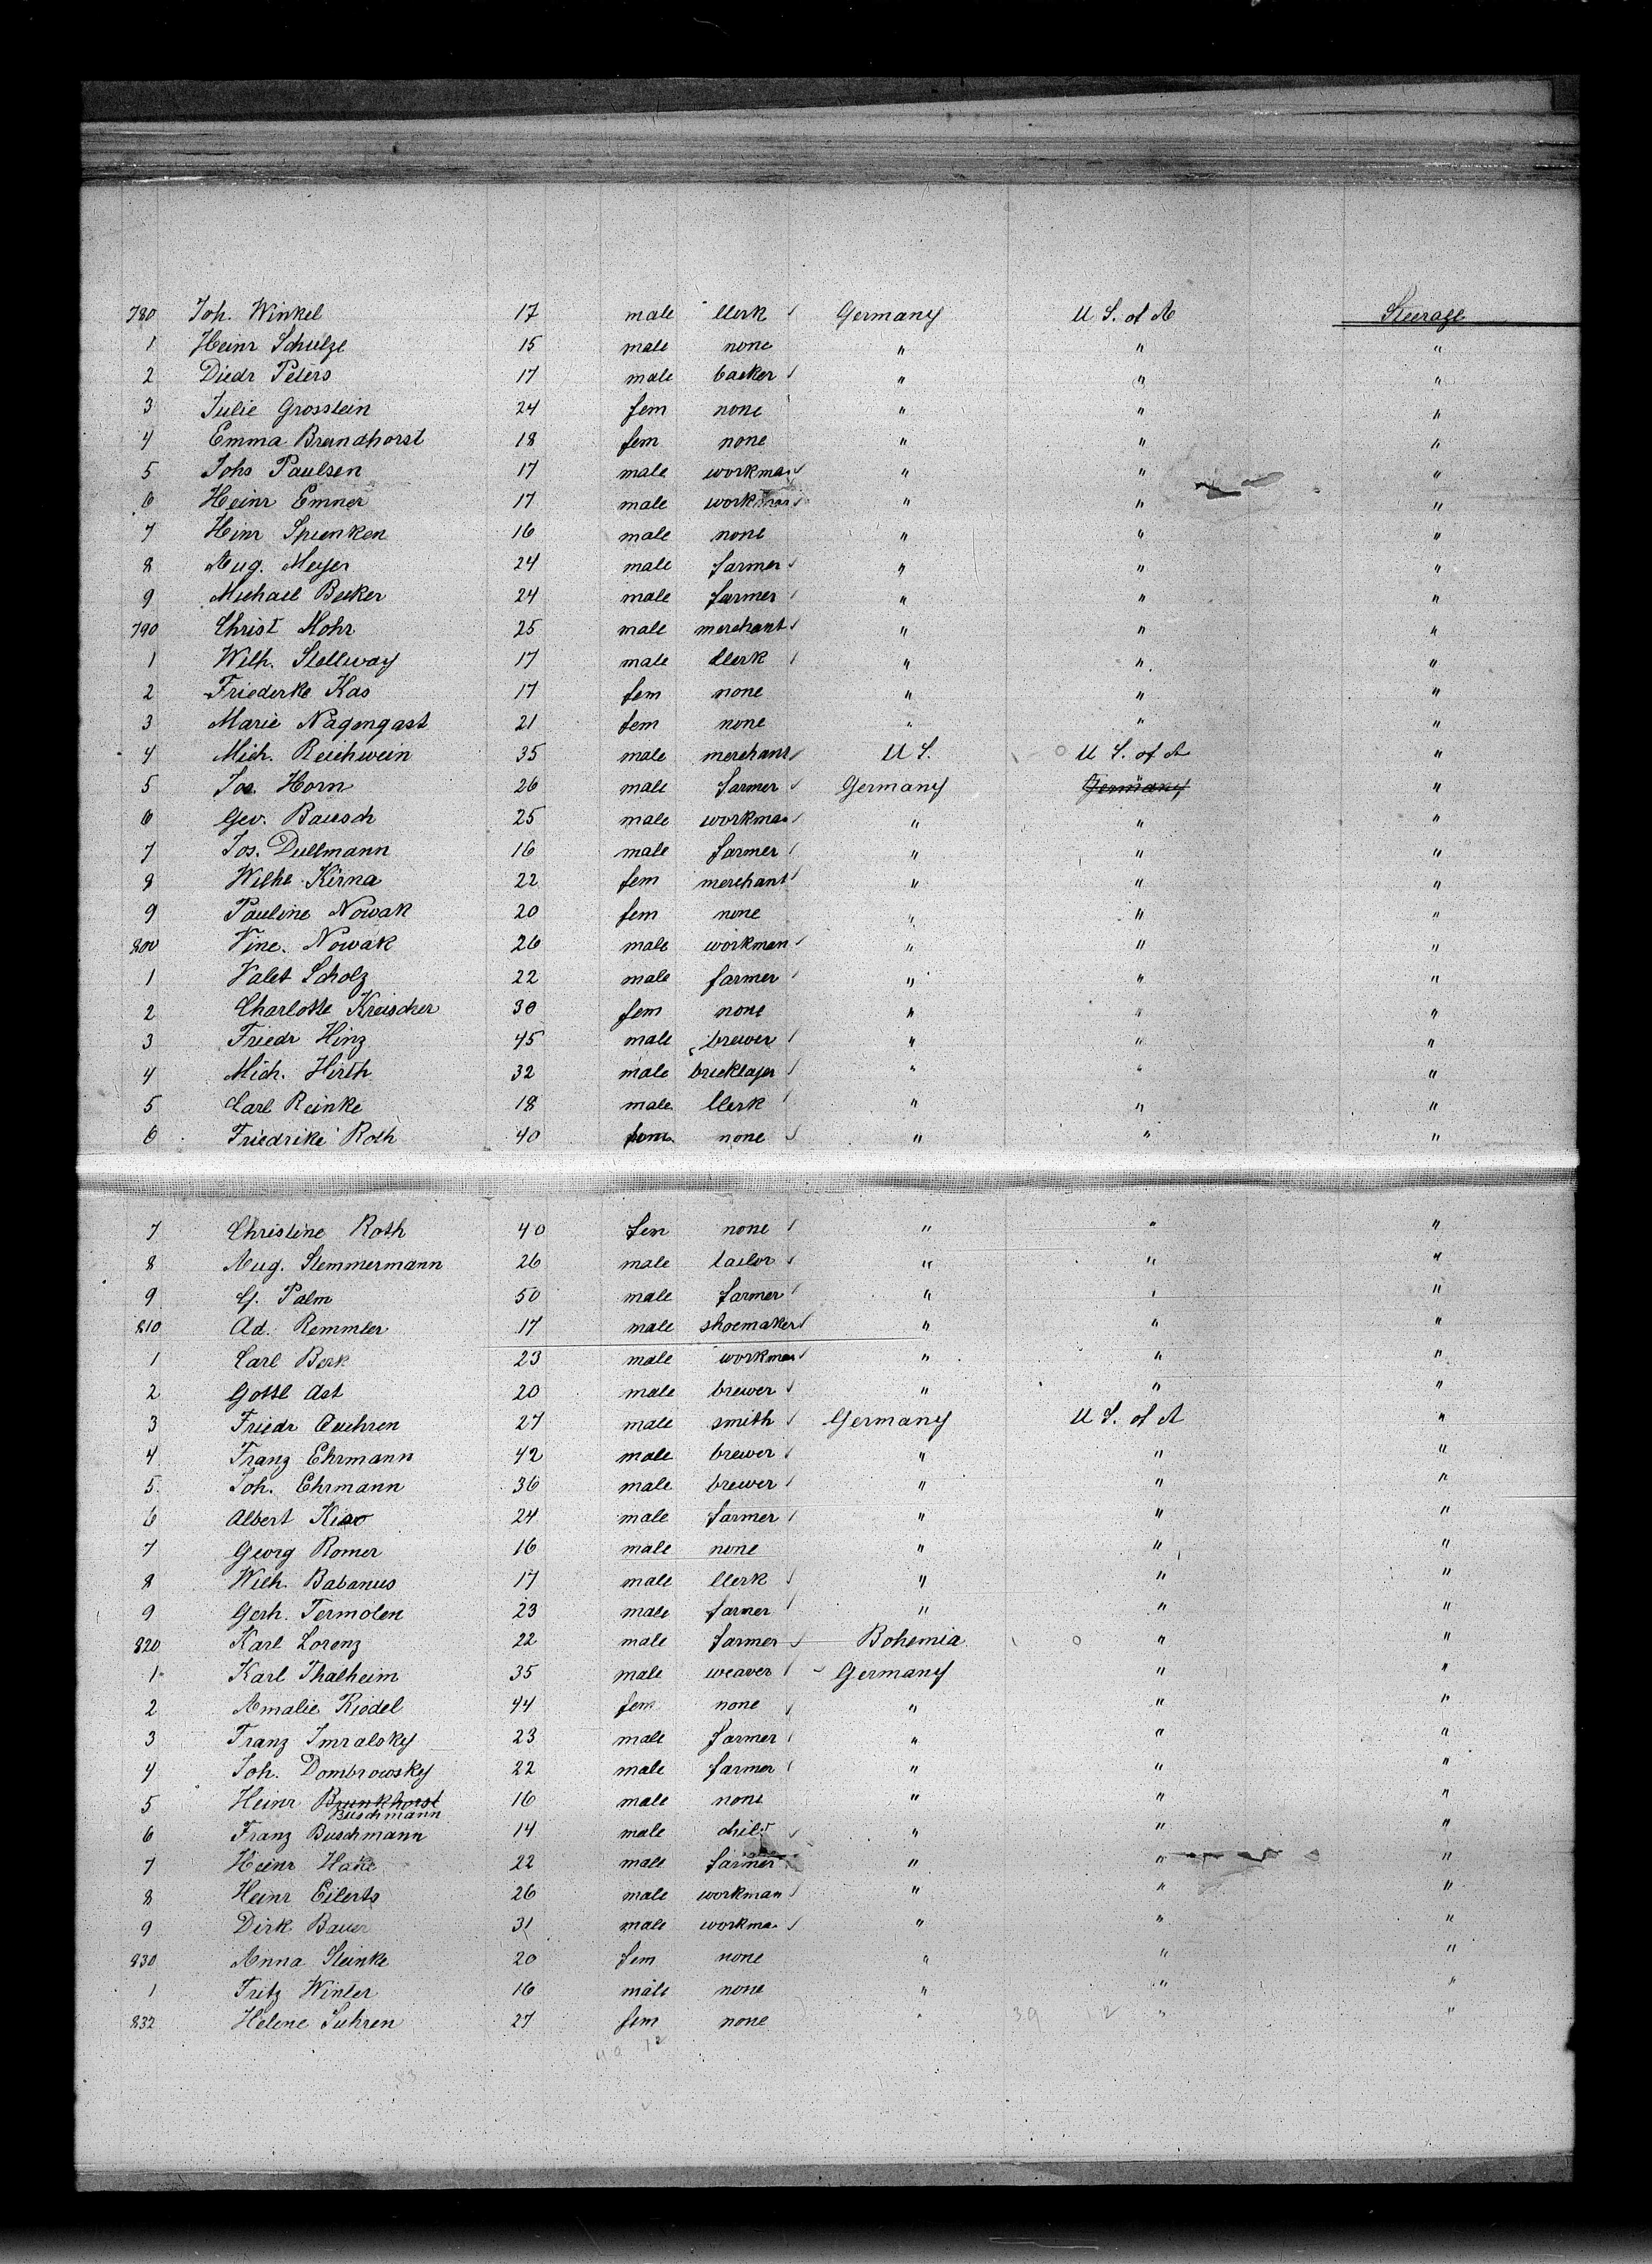 780 Joh. Winkel 17 male Clerk Germany U S. of A Steerage
1 Heinr Schulze 15 male none " " "
2 Diedr Peters 17 male backer " " "
3 Julie Grosstein 24 fem none " " "
4 Emma Brandhorst 18 fem none " " "
5 Johs Paulsen 17 male workman " " "
6 Heinr Emner 17 male workman " " "
7 Heinr Spienken 16 male none " " "
8 Aug. Meyer 24 male farmer " " "
9 Michael Becker 24 male farmer " " "
790 Christ Mohr 25 male merchant " " "
1 Wilh. Stellway 17 male Clerk " " "
2 Friederke Kas 17 fem none " " "
3 Marie Nagengast 21 fem none " " "
4 Mich. Reichwein 35 male merchant U S. U S. of A "
5 Jos. Horn 26 male farmer Germany Germany "
6 Geo. Bausch 25 male workman " " "
7 Jos. Dullmann 16 male farmer " " "
8 Wilhe Kirna 22 fem merchant " " "
9 Pauline Nowak 20 fem none " " "
800 Vinc. Nowak 26 male workman " " "
1 Valet Scholz 22 male farmer " " "
2 Charlotte Kreischer 30 fem none " " "
3 Friedr Hinz 45 male brewer " " "
4 Mich. Hirth 32 male bricklayer " " "
5 Carl Reinke 18 male Clerk " " "
6 Friedrike Roth 40 fem none " " "
7 Christine Roth 40 fem none " " "
8 Aug. Stemmermann 26 male tailor " " "
9 G. Palm 50 male farmer " " "
810 Ad. Remmler 17 male shoemaker " " "
1 Carl Berk 23 male workman " " "
2 Gottl Ast 20 male brewer " " "
3 Friedr Oeuhren 27 male smith Germany U S. of A "
4 Franz Ehrmann 42 male brewer " " "
5 Joh. Ehrmann 36 male brewer " " "
6 Albert 24 male farmer " " "
7 Georg Romer 16 male none " " "
8 Wilh. Babanus 17 male Clerk " " "
9 Gerh. Termolen 23 male farmer " " "
820 Karl Lorenz 22 male farmer Bohemia " "
1 Karl Thalheim 35 male weaver Germany " "
2 Amalie Riedel 44 fem none " " "
3 Franz Imralsky 23 male farmer " " "
4 Joh. Dombrowsky 22 male farmer " " "
5 Heinr Brunkhorst 16 male none " " "
Buschmann
6 Franz Buschmann 14 male child " " "
7 Heinr Hake 22 male farmer " " "
8 Heinr Eilerts 26 male workman " " "
9 Dirk Bauer 31 male workman " " "
830 Anna Steinke 20 fem none " " "
1 Fritz Winter 16 male none " " "
832 Helene Suhren 27 fem none " 39 12 " "